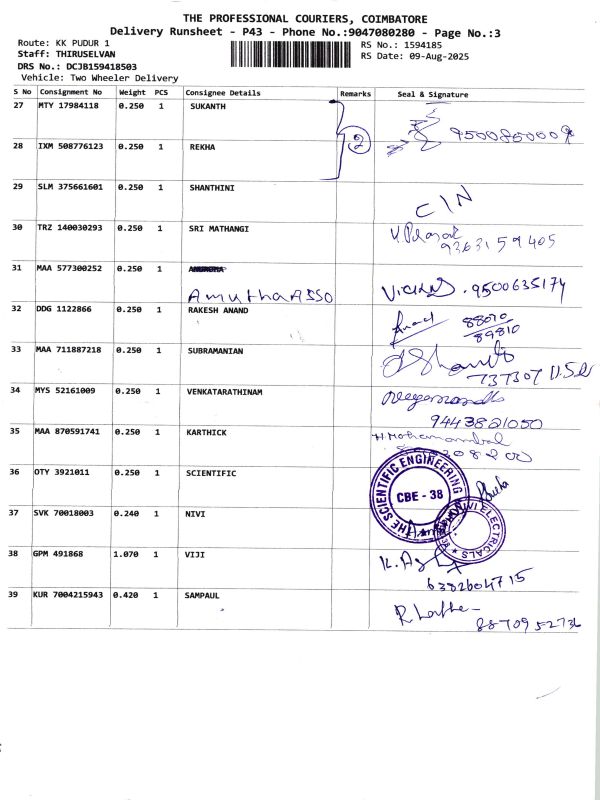 THE PROFESSIONAL COURIERS, COIMBATORE
Delivery Runsheet - P43 - Phone No.:9047080280 - Page No.:3
Route: KK PUDUR 1
Staff: THIRUSELVAN
DRS No.: DCJB159418503
Vehicle: Two Wheeler Delivery
RS No.: 1594185
RS Date: 09-Aug-2025
S No Consignment No Weight PCS Consignee Details Remarks Seal & Signature
27 MTY 17984118 0.250 1 SUKANTH
2
28 IXM 508776123 0.250 1 REKHA
29 SLM 375661601 0.250 1 SHANTHINI
CIN
30 TRZ 140030293 0.250 1 SRI MATHANGI
9363159405
31 MAA 577300252 0.250 1
AmuthaASSO
9500635174
32 DDG 1122866 0.250 1 RAKESH ANAND
88070
89810
33 MAA 711887218 0.250 1 SUBRAMANIAN
34 MYS 52161009 0.250 1 VENKATARATHINAM
9443821050
35 MAA 870591741 0.250 1 KARTHICK
36 OTY 3921011 0.250 1 SCIENTIFIC
THE SCIENTIFIC ENGINEERING
CBE - 38
37 SVK 70018003 0.240 1 NIVI
NIVI ELECTRICALS
38 GPM 491868 1.070 1 VIJI
6382604715
39 KUR 7004215943 0.420 1 SAMPAUL
8870952736